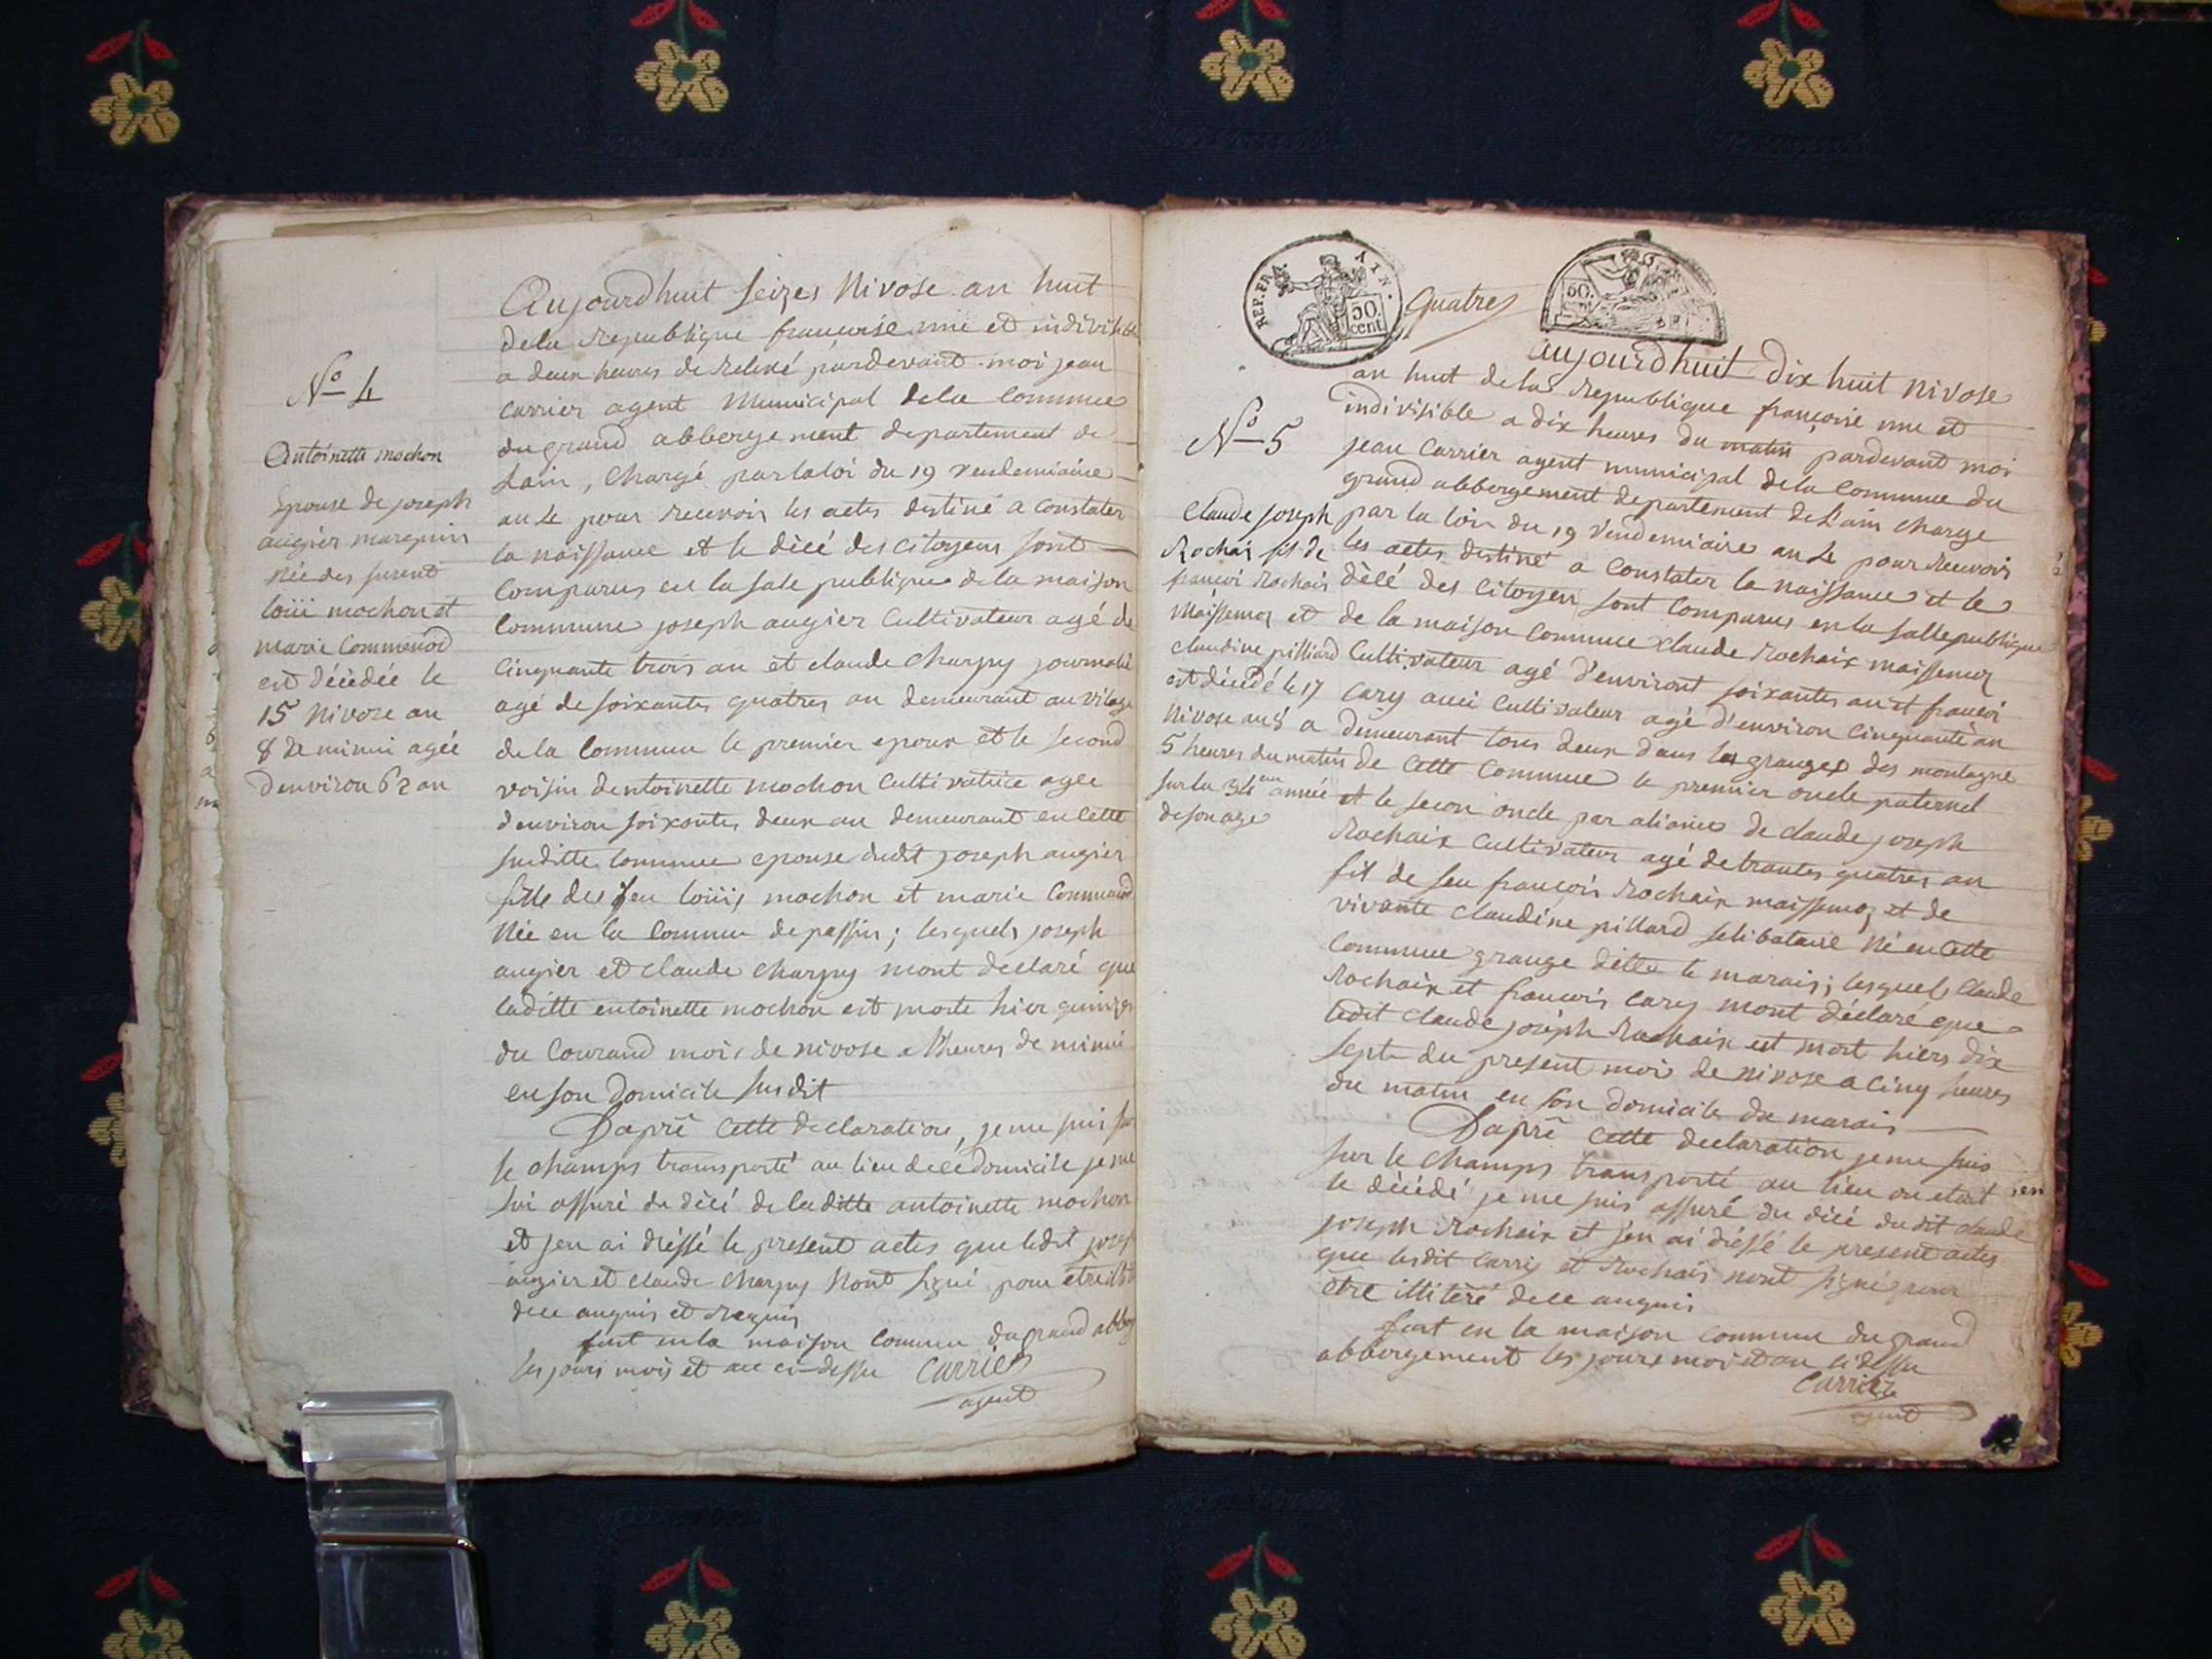 Aujourdhuit seizes Nivose an huit
dela Republique francoise une et indivisible
a deux heures de Relevé pardevant moi jean
Carrier agent Municipal dela Commune
du grand abbergement departement de
Lain, Chargé par la loi du 19 vendemiaire
an 4 pour Recevoir les actes destiné a Constater
la naissance et le décé des Citoyens sont
Comparus en la sale publique dela maison
Commune joseph augier Cultivateur agé de
Cinquante trois an et claude Charpy journalié
agé de soixantes quatres an demeurant au vilage
dela Commune le premier epoux et le second
voisin dentoinette mochon Cultivatrice agee
denviron soixantes deux an demeurant en Cette
susditte Commune epouse dudit joseph augier
fille des feu loüis mochon et marie Commenod
Née en la Commune de passin; lesquels joseph
augier et Claude Charpy mont declaré que
laditte entoinette mochon est morte hier quinzes
du Courand mois de nivose a heures de minui
en son Domicile susdit
Daprê Cette declaration, je me suis sur
le champs transporté au lieu de ce domicile je me
sui assuré du décé de laditte antoinette mochon
et jen ai dréssé le present actes que ledit joseph
augier et claude Charpy Nont signé pour etre
dece anquis et Requis
fait en la maison Commune du grand abberg
les jours mois et an ci-dessu Carrier
agent
No 4
Antoinette mochon
Epouse de joseph
augier marquin
Née des furent
loüi mochon et
marie Commenod
est décédée le
15 Nivose an
8 de minui agée
denviron 62 an
REP. FRA. AIN.
50. cent
Quatres
50. cent
aujourdhuit Dix huit Nivose
an huit dela Republique françoise une et
indivisible a dix heures du matin pardevant moi
jean Carrier agent municipal dela Commune du
grand abbergement departement de Lain charge
par la loix du 19 vendemiaire an 4 pour Recevoir
les actes destiné a Constater la naissance et le
décé des Citoyen sont Comparus en la salle publique
de la maison Commune Claude Rochaix maissemoz
Cultivateur agé d'environt soixantes an et francoi
Cary auci Cultivateur agé d'environ Cinquante an
demeurant tous deux dans les granges des montagne
de Cette Commune le premier oncle paternel
et le secon oncle par aliance de claude joseph
Rochaix Cultivateur agé de trantes quatres an
fil de feu françois Rochaix maissemoz et de
vivante Claudine pillard selibataire Né en Cette
Commune grange ditte le marais; lesquels Claude
Rochaix et francois Cary mont déclaré que
ledit Claude joseph Rochaix est mort hiers dix
sept du present moi de nivose a Cinq heures
du matin en son domicile du marais
Daprê Cette declaration je me suis
sur le champs transporté au lieu ou etait
le décédé je me suis assuré du décé dudit claude
joseph Rochaix et j'en ai dréssé le present actes
que lesdit Carry et Rochais nont signé pour
être illiteré dece anquis
fait en la maison Commune du grand
abbergement les jours moi et an ci dessu
Carrier
agent
No 5
Claude joseph
Rochais fil de
francoi Rochais
Maissemoz et
claudine pilliard
est décédé le 17
Nivose an 8 a
5 heures du matin
sur la 34eme année
de son age